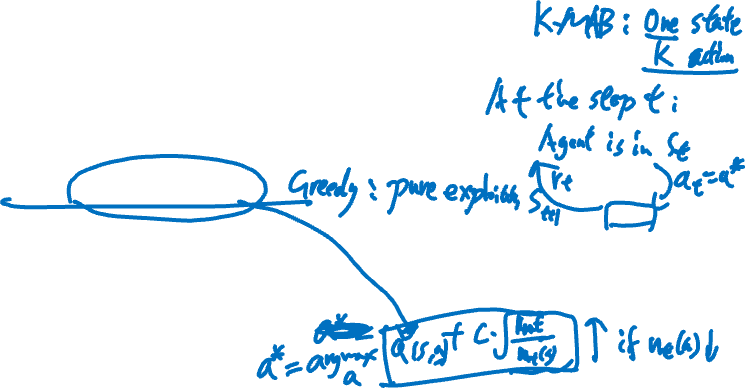 K-MAB : One state
K action
At the step t :
Agent is in St
rt at = a*
Greedy : pure exploitation St+1
a* = argmax a Q(s,a) + C · √(ln t / nt(a)) ↑ if nt(a) ↓